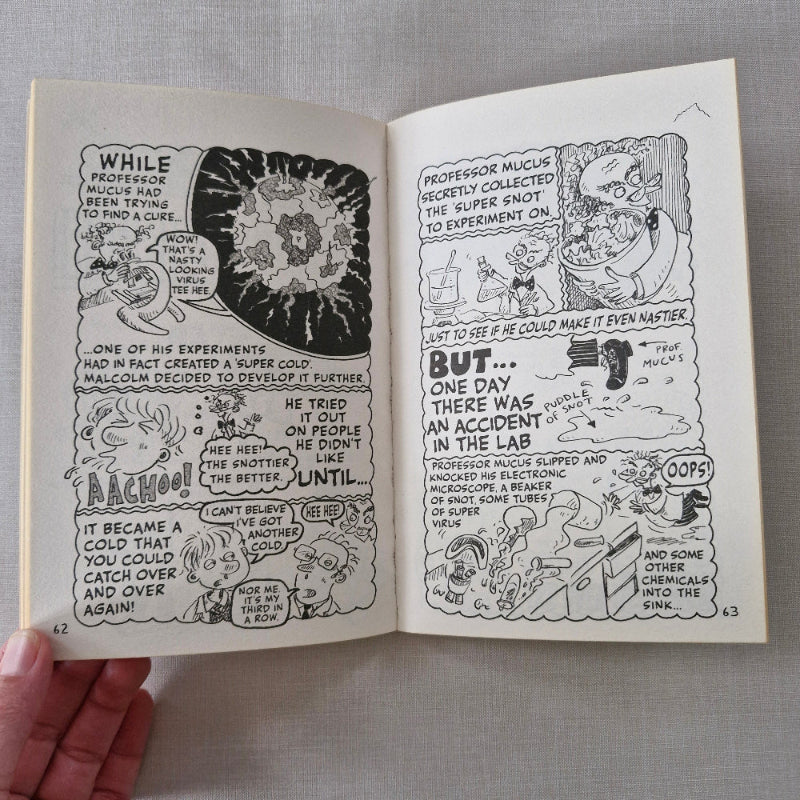 WHILE
PROFESSOR
MUCUS HAD
BEEN TRYING
TO FIND A CURE...
WOW!
THAT'S A
NASTY
LOOKING
VIRUS
TEE HEE.
...ONE OF HIS EXPERIMENTS
HAD IN FACT CREATED A 'SUPER COLD'.
MALCOLM DECIDED TO DEVELOP IT FURTHER.
AACHOO!
HEE HEE!
THE SNOTTIER
THE BETTER.
HE TRIED
IT OUT
ON PEOPLE
HE DIDN'T
LIKE
UNTIL...
IT BECAME A
COLD THAT
YOU COULD
CATCH OVER
AND OVER
AGAIN!
I CAN'T BELIEVE
I'VE GOT
ANOTHER
COLD.
HEE HEE!
NOR ME.
IT'S MY
THIRD IN
A ROW.
62
PROFESSOR MUCUS
SECRETLY COLLECTED
THE 'SUPER SNOT'
TO EXPERIMENT ON.
JUST TO SEE IF HE COULD MAKE IT EVEN NASTIER.
BUT...
ONE DAY
THERE WAS
AN ACCIDENT
IN THE LAB
PROF.
MUCUS
PUDDLE
OF SNOT
PROFESSOR MUCUS SLIPPED AND
KNOCKED HIS ELECTRONIC
MICROSCOPE, A BEAKER
OF SNOT, SOME TUBES
OF SUPER
VIRUS
OOPS!
AND SOME
OTHER
CHEMICALS
INTO THE
SINK...
63